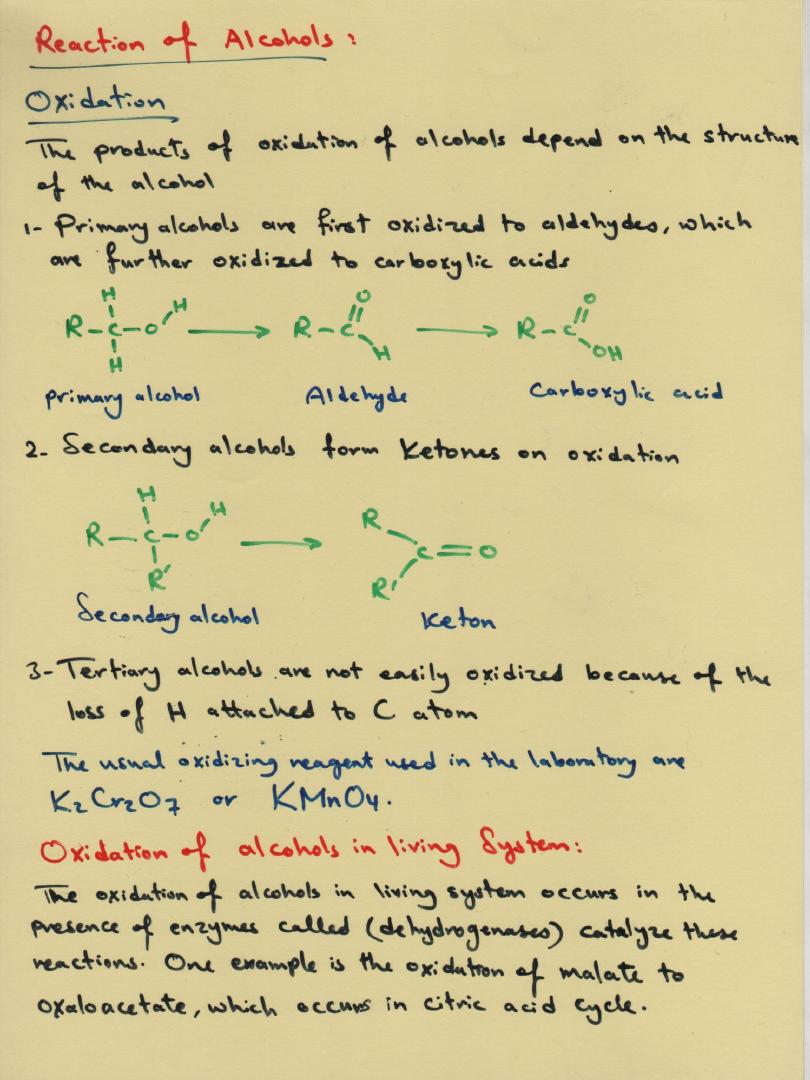 Reaction of Alcohols:
Oxidation
The products of oxidation of alcohols depend on the structure
of the alcohol
1- Primary alcohols are first oxidized to aldehydes, which
are further oxidized to carboxylic acids
H H O O
R-C-O R-C R-C
H H OH
primary alcohol Aldehyde Carboxylic acid
2- Secondary alcohols form Ketones on oxidation
H H R
R-C-O C=O
R' R'
Secondary alcohol Keton
3- Tertiary alcohols are not easily oxidized because of the
loss of H attached to C atom
The usual oxidizing reagent used in the laboratory are
K2Cr2O7 or KMnO4.
Oxidation of alcohols in living System:
The oxidation of alcohols in living system occurs in the
presence of enzymes called (dehydrogenases) catalyze these
reactions. One example is the oxidation of malate to
oxaloacetate, which occurs in citric acid cycle.